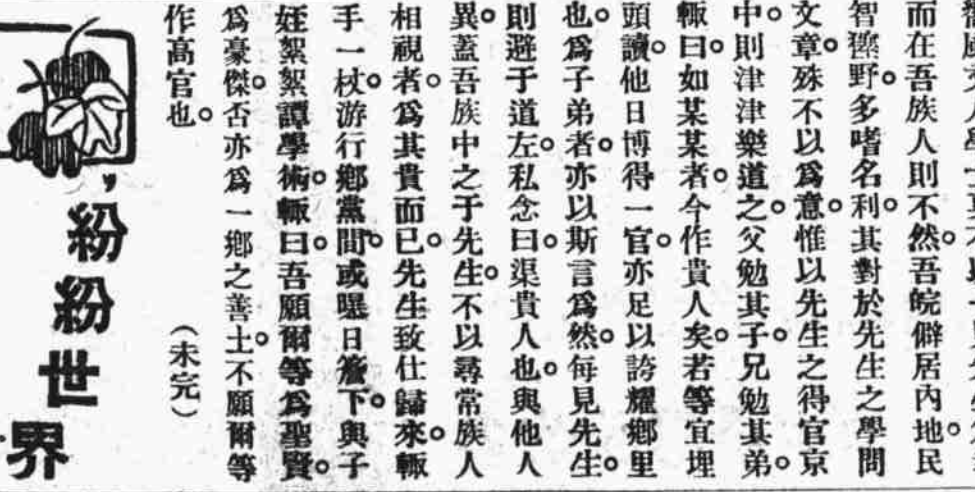 而在吾族人則不然。吾皖僻居內地。民
智獉野。多嗜名利。其對於先生之學問
文章。殊不以爲意。惟以先生之得官京
中。則津津樂道之。父勉其子。兄勉其弟。
輒曰。如某某者。今作貴人矣。若等宜埋
頭讀。他日博得一官。亦足以誇耀鄉里
也。爲子弟者。亦以斯言爲然。每見先生。
則避于道左。私念曰。渠貴人也。與他人
異。蓋吾族中之于先生。不以尋常族人
相視者。爲其貴而已。先生致仕歸來。輒
手一杖。游行鄉黨間。或曝日簷下。與子
姪絮絮譚學術。輒曰。吾願爾等爲聖賢。
爲豪傑。否亦爲一鄉之善士。不願爾等
作高官也。
（未完）
紛紛世界